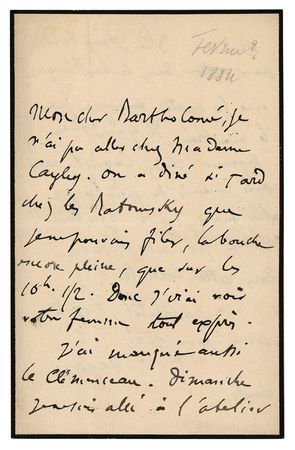 Février
1884
Mon cher Bartholomé, je
n'ai pu aller chez Madame
Cayley. On a dîné si tard
chez les
que
je ne pouvais filer, la bouche
encore pleine, que sur les
10h 1/2. Donc j'irai voir
votre femme tout exprès.
J'ai manqué aussi
le Clémenceau. Dimanche
je suis allé à l'atelier